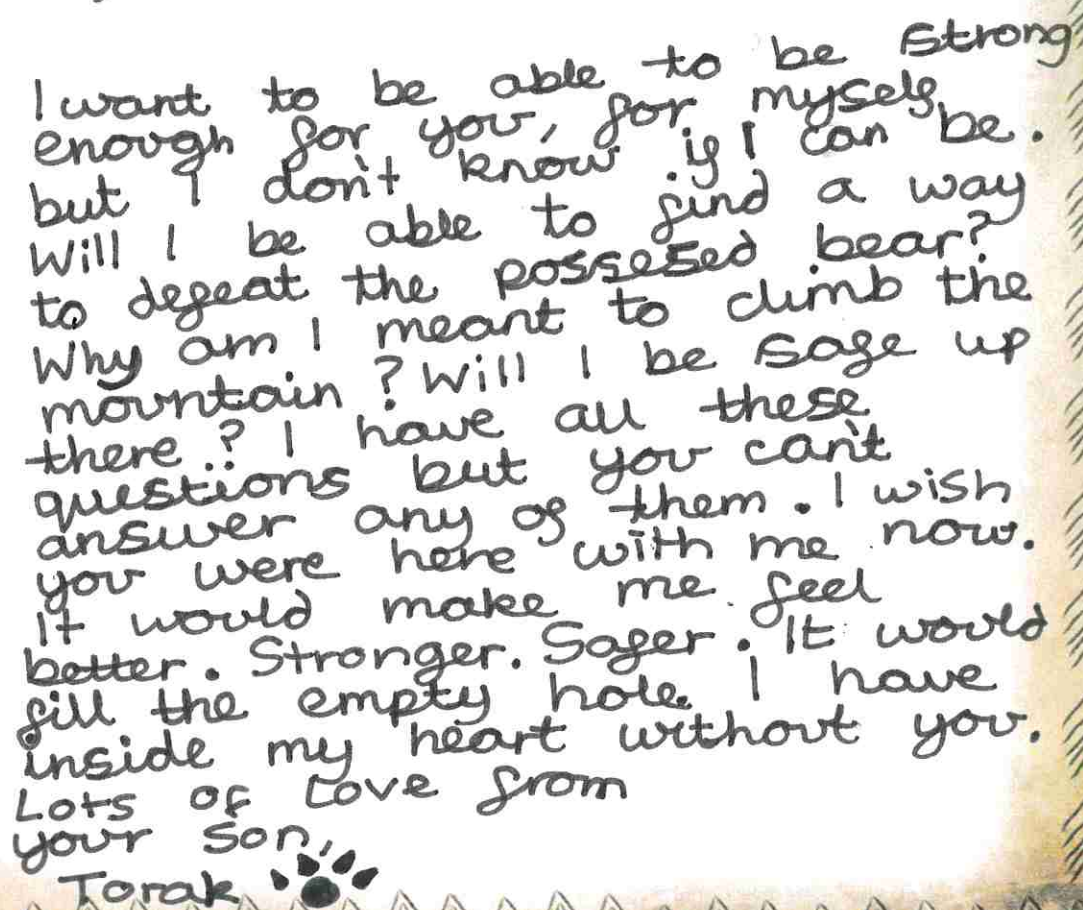 I want to be able to be strong
enough for you, for myself
but I don't know if I can be.
Will I be able to find a way
to defeat the possesed bear?
Why am I meant to climb the
mountain? Will I be safe up
there? I have all these
questions but you can't
answer any of them. I wish
you were here with me now.
It would make me feel
better. Stronger. Safer. It would
fill the empty hole I have
inside my heart without you.
Lots of Love from
your son,
Torak